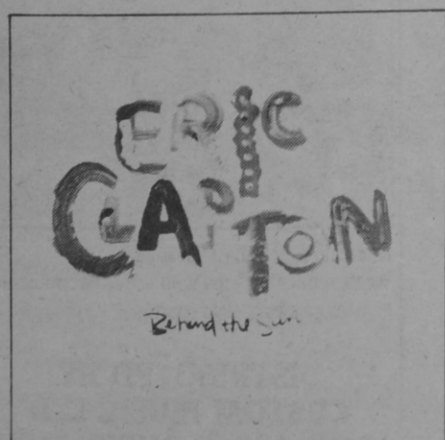 ERIC
CLAPTON
Behind the Sun